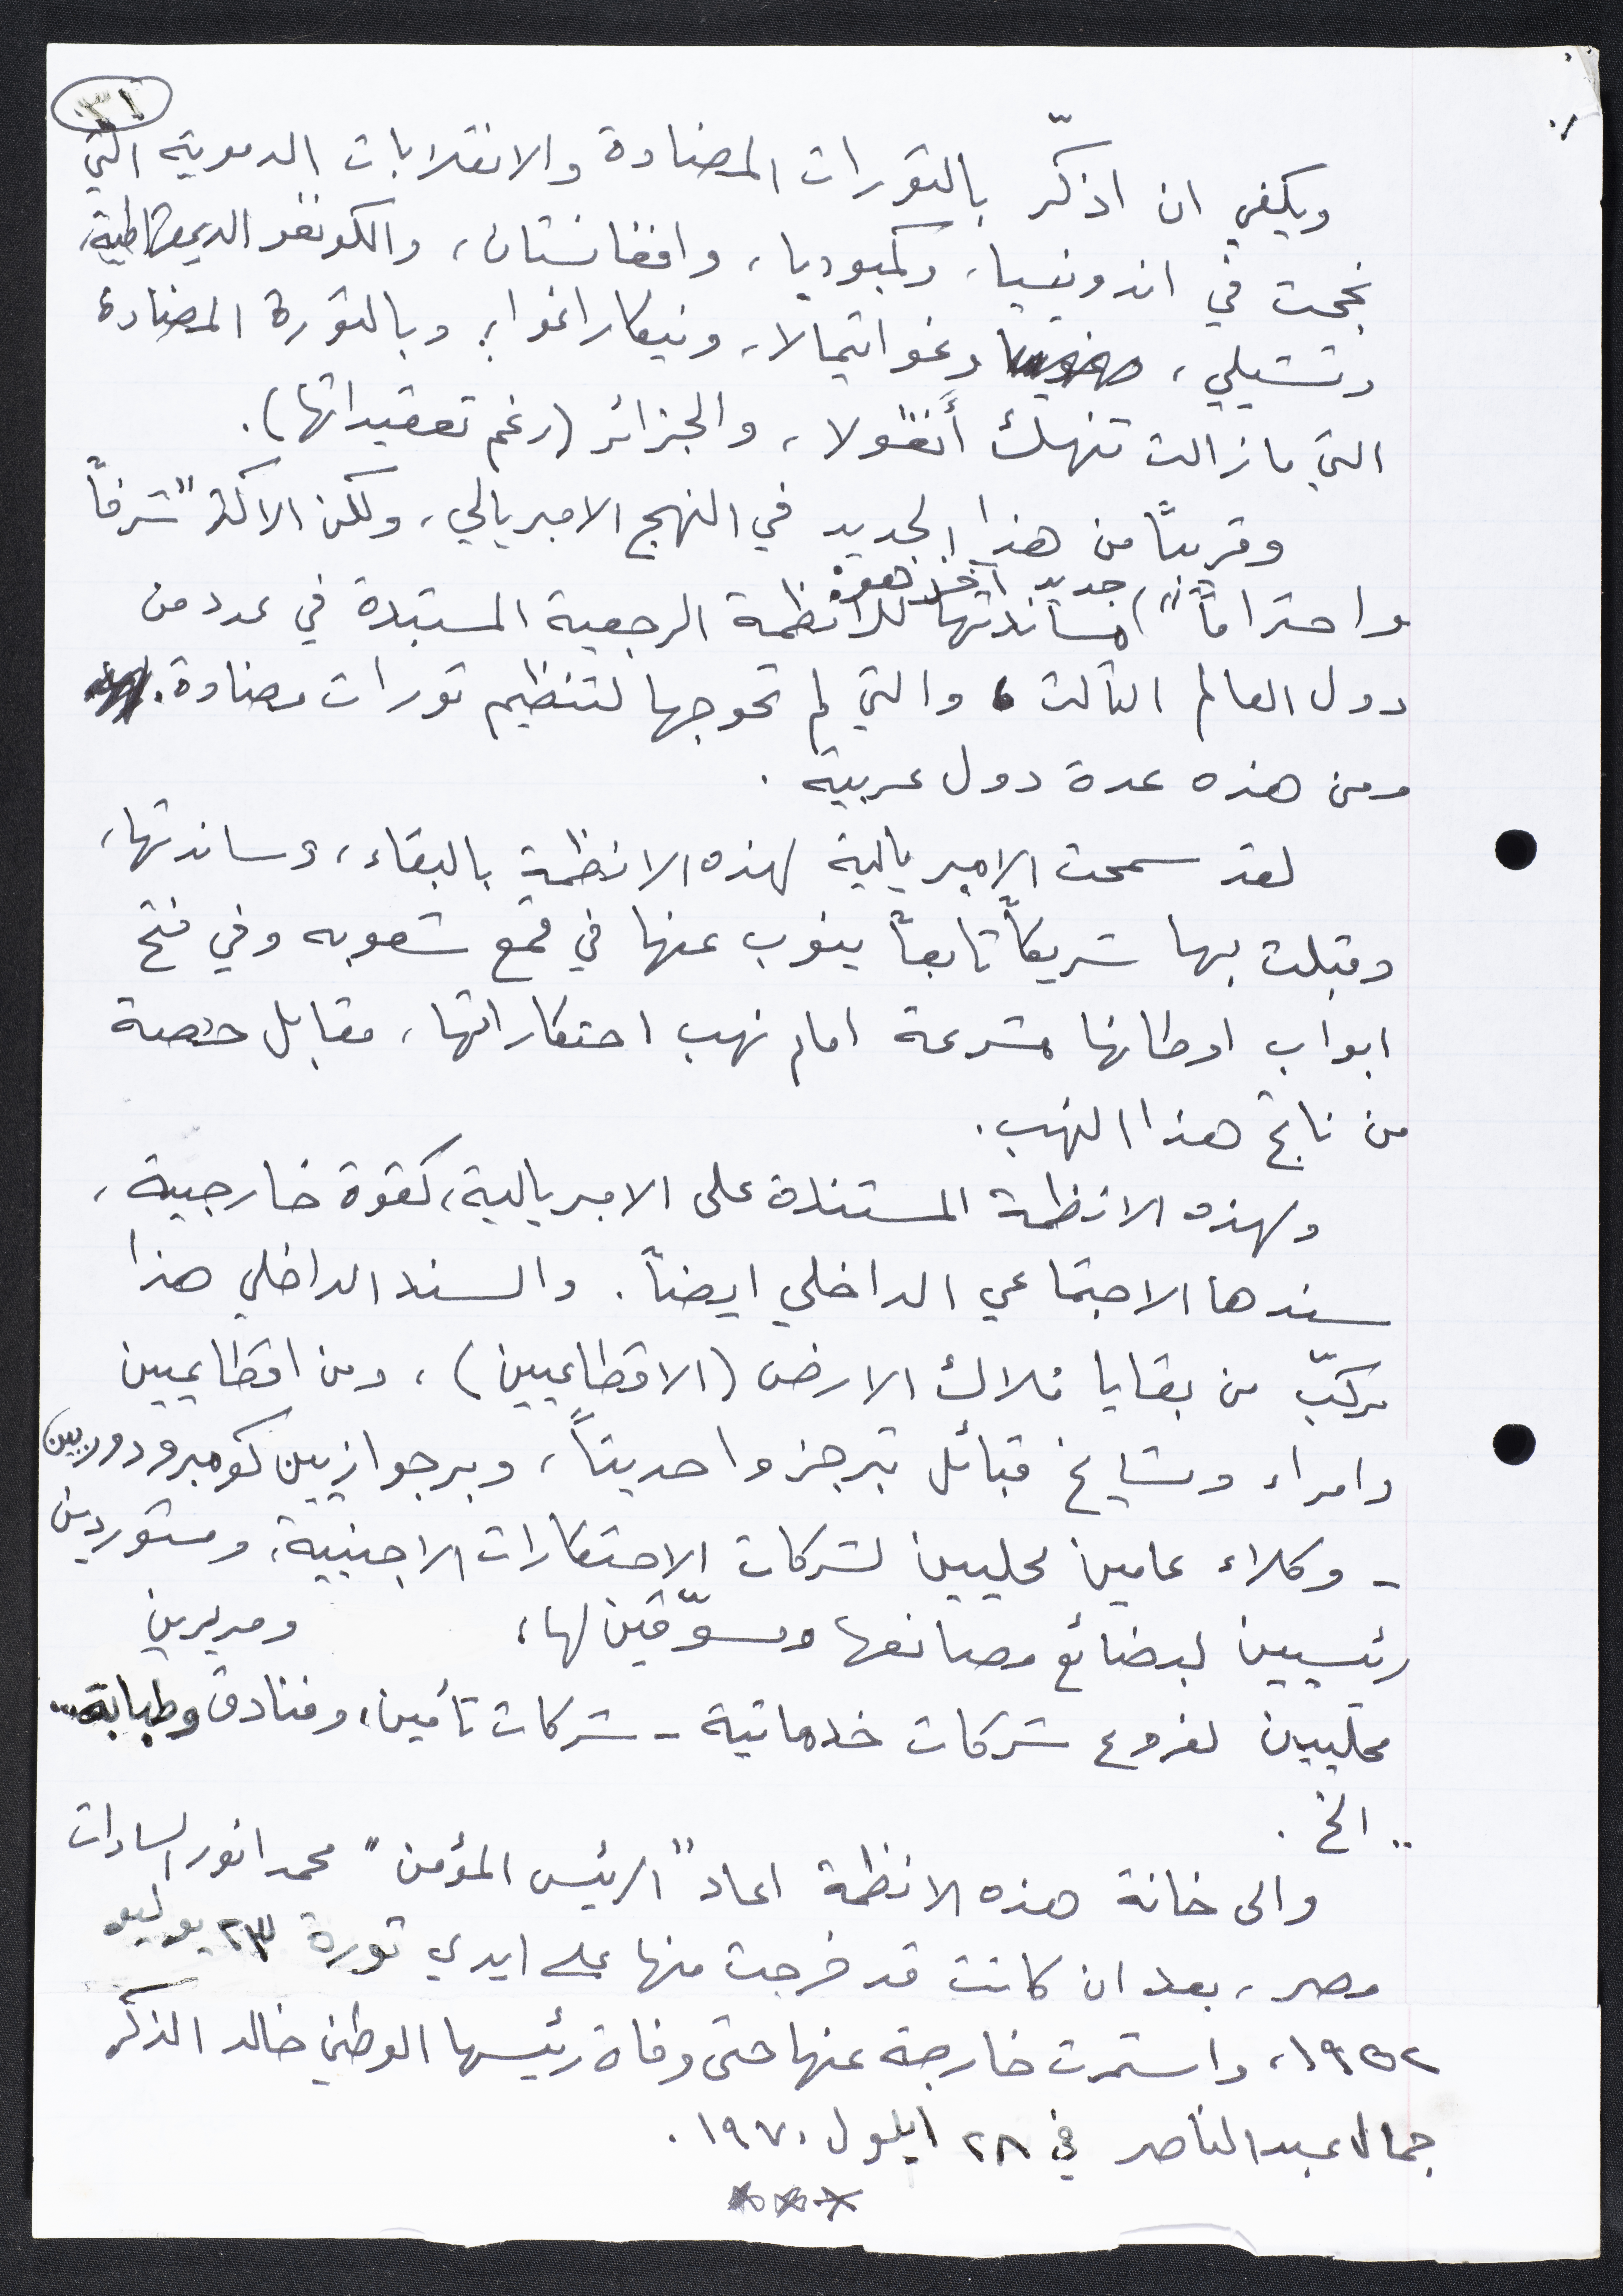 ٣١
ويكفي ان اذكّر بالثورات المضادة والانقلابات الدموية التي
نجحت في اندونيسيا، وكمبوديا، وافغانستان، والكونغو الديمقراطية،
وتشيلي، وغواتيمالا، ونيكاراغوا؛ وبالثورة المضادة
التي ما زالت تنهك أنغولا، والجزائر (رغم تعقيداتها).
وقريباً من هذا الجديد في النهج الامبريالي، ولكن الاكثر "شرفاً
جديد آخر هو:
واحتراماً"، مساندتها للانظمة الرجعية المستبدة في عدد من
دول العالم الثالث، والتي لم تحوجها لتنظيم ثورات مضادة.
ومن هذه عدة دول عربية.
لقد سمحت الامبريالية لهذه الانظمة بالبقاء، وساندتها،
وقبلت بها شريكاً تابعاً ينوب عنها في قمع شعوبه وفي فتح
ابواب اوطانها مشرعة امام نهب احتكاراتها، مقابل حصة
من ناتج هذا النهب.
ولهذه الانظمة المستندة على الامبريالية، كقوة خارجية،
سندها الاجتماعي الداخلي ايضاً. والسند الداخلي هذا
مركّب من بقايا ملاك الارض (الاقطاعيين)، ومن اقطاعيين
وامراء ومشايخ قبائل تبرجزوا حديثاً، وبرجوازيين كومبرودوريين
- وكلاء عامين محليين لشركات الاحتكارات الاجنبية، ومستوردين
رئيسيين لبضائع مصانعها ومسوّقين لها، ومديرين
محليين لفروع شركات خدماتية - شركات تأمين، وفنادق وطبابة..
.. الخ.
والى خانة هذه الانظمة اعاد "الرئيس المؤمن" محمد انور السادات
مصر، بعد ان كانت قد خرجت منها على ايدي ثورة ٢٣ يوليو
١٩٥٢، واستمرت خارجة عنها حتى وفاة رئيسها الوطني خالد الذكر
جمال عبد الناصر في ٢٨ ايلول ١٩٧٠.
***